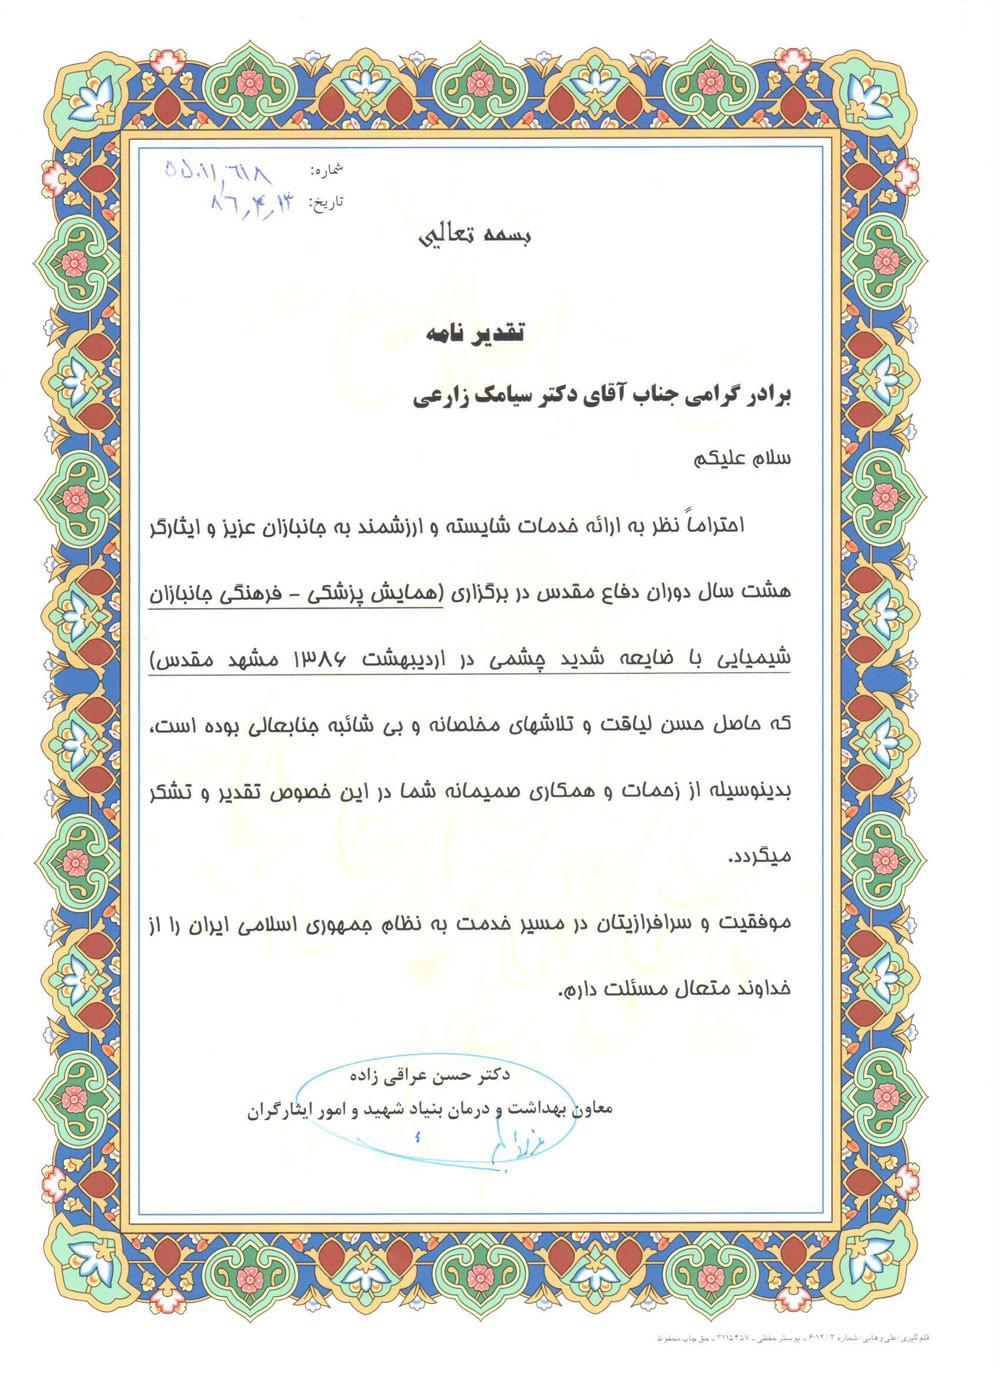 شماره: ۵۵۰۱۱٫۶۱۸
تاریخ: ۸۶٫۴٫۱۳
بسمه تعالی
تقدیر نامه
برادر گرامی جناب آقای دکتر سیامک زارعی
سلام علیکم
احتراماً نظر به ارائه خدمات شایسته و ارزشمند به جانبازان عزیز و ایثارگر
هشت سال دوران دفاع مقدس در برگزاری (همایش پزشکی - فرهنگی جانبازان
شیمیایی با ضایعه شدید چشمی در اردیبهشت ۱۳۸۶ مشهد مقدس)
که حاصل حسن لیاقت و تلاشهای مخلصانه و بی شائبه جنابعالی بوده است،
بدینوسیله از زحمات و همکاری صمیمانه شما در این خصوص تقدیر و تشکر
میگردد.
موفقیت و سرافرازیتان در مسیر خدمت به نظام جمهوری اسلامی ایران را از
خداوند متعال مسئلت دارم.
دکتر حسن عراقی زاده
معاون بهداشت و درمان بنیاد شهید و امور ایثارگران